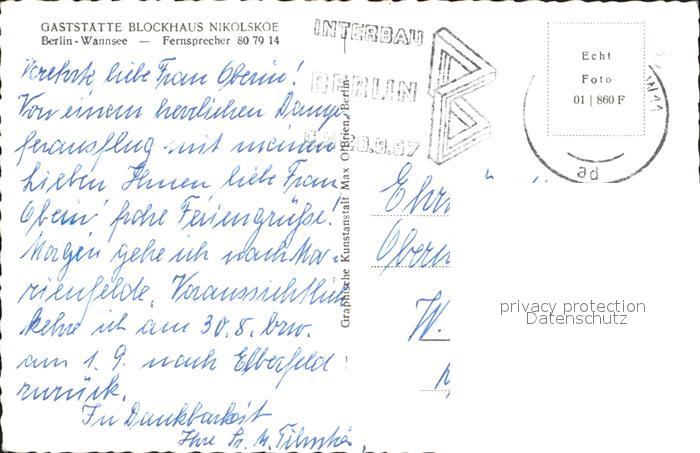 GASTSTÄTTE BLOCKHAUS NIKOLSKOE
Berlin-Wannsee — Fernsprecher 80 79 14
Verehrte, liebe Frau Oberin!
Von einem herrlichen Damp-
ferausflug mit meinen
Lieben Ihnen liebe Frau
Oberin frohe Feriengrüße!
Morgen gehe ich nach Ma-
rienfelde. Voraussichtlich
kehre ich am 30.8. bzw.
am 1.9. nach Elberfeld
zurück.
In Dankbarkeit
Ihre Sr. M.
Graphische Kunstanstalt Max O'Brien, Berlin
INTERBAU
BERLIN
Echt
Foto
01 | 860 F
ad
Oberin
W.
privacy protection
Datenschutz